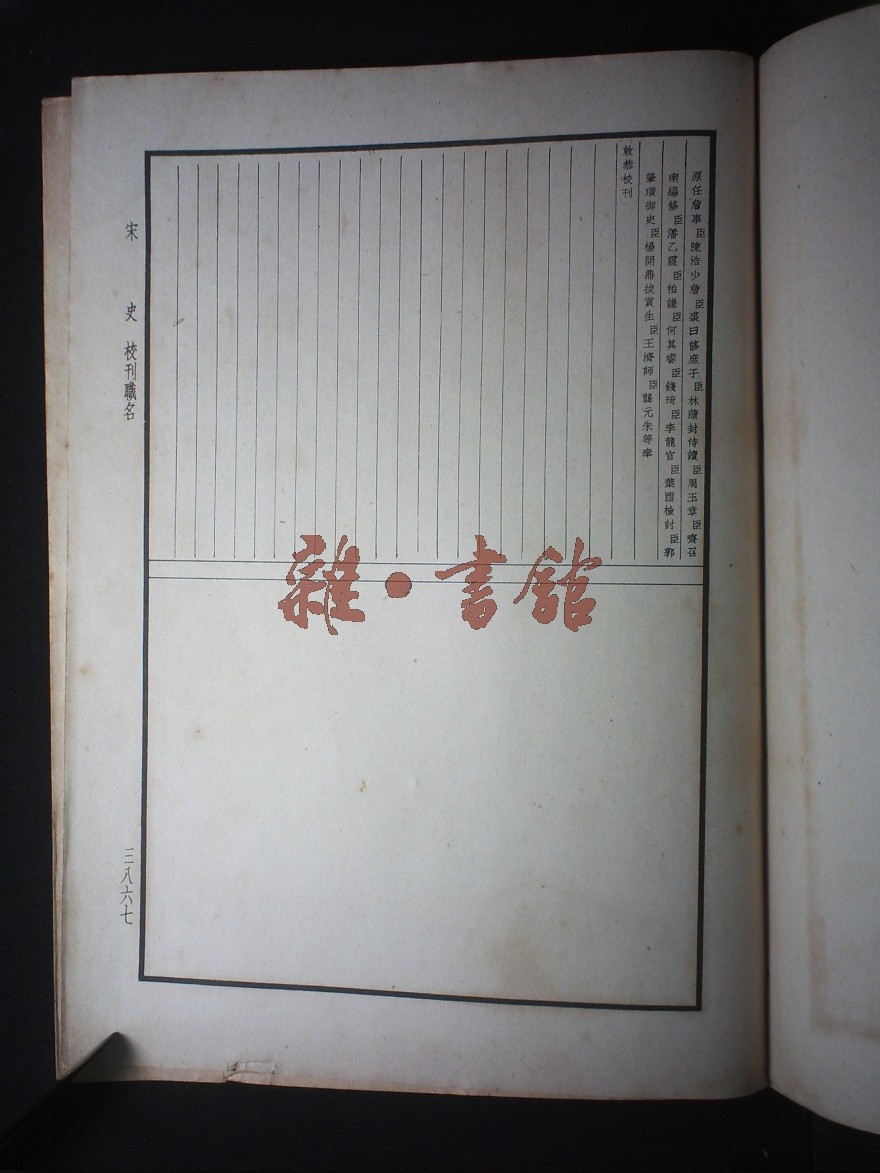 原任詹事臣陳浩少詹臣裘曰修庶子臣林蒲封侍讀臣周玉章臣齊召
南編修臣潘乙震臣柏謙臣何其睿臣錢琦臣李龍官臣葉酉檢討臣郭
肇璜御史臣楊開鼎拔貢生臣王濟師臣龔元朱等奉
敕恭校刊
宋史 校刊職名
三八六七
雜•書館